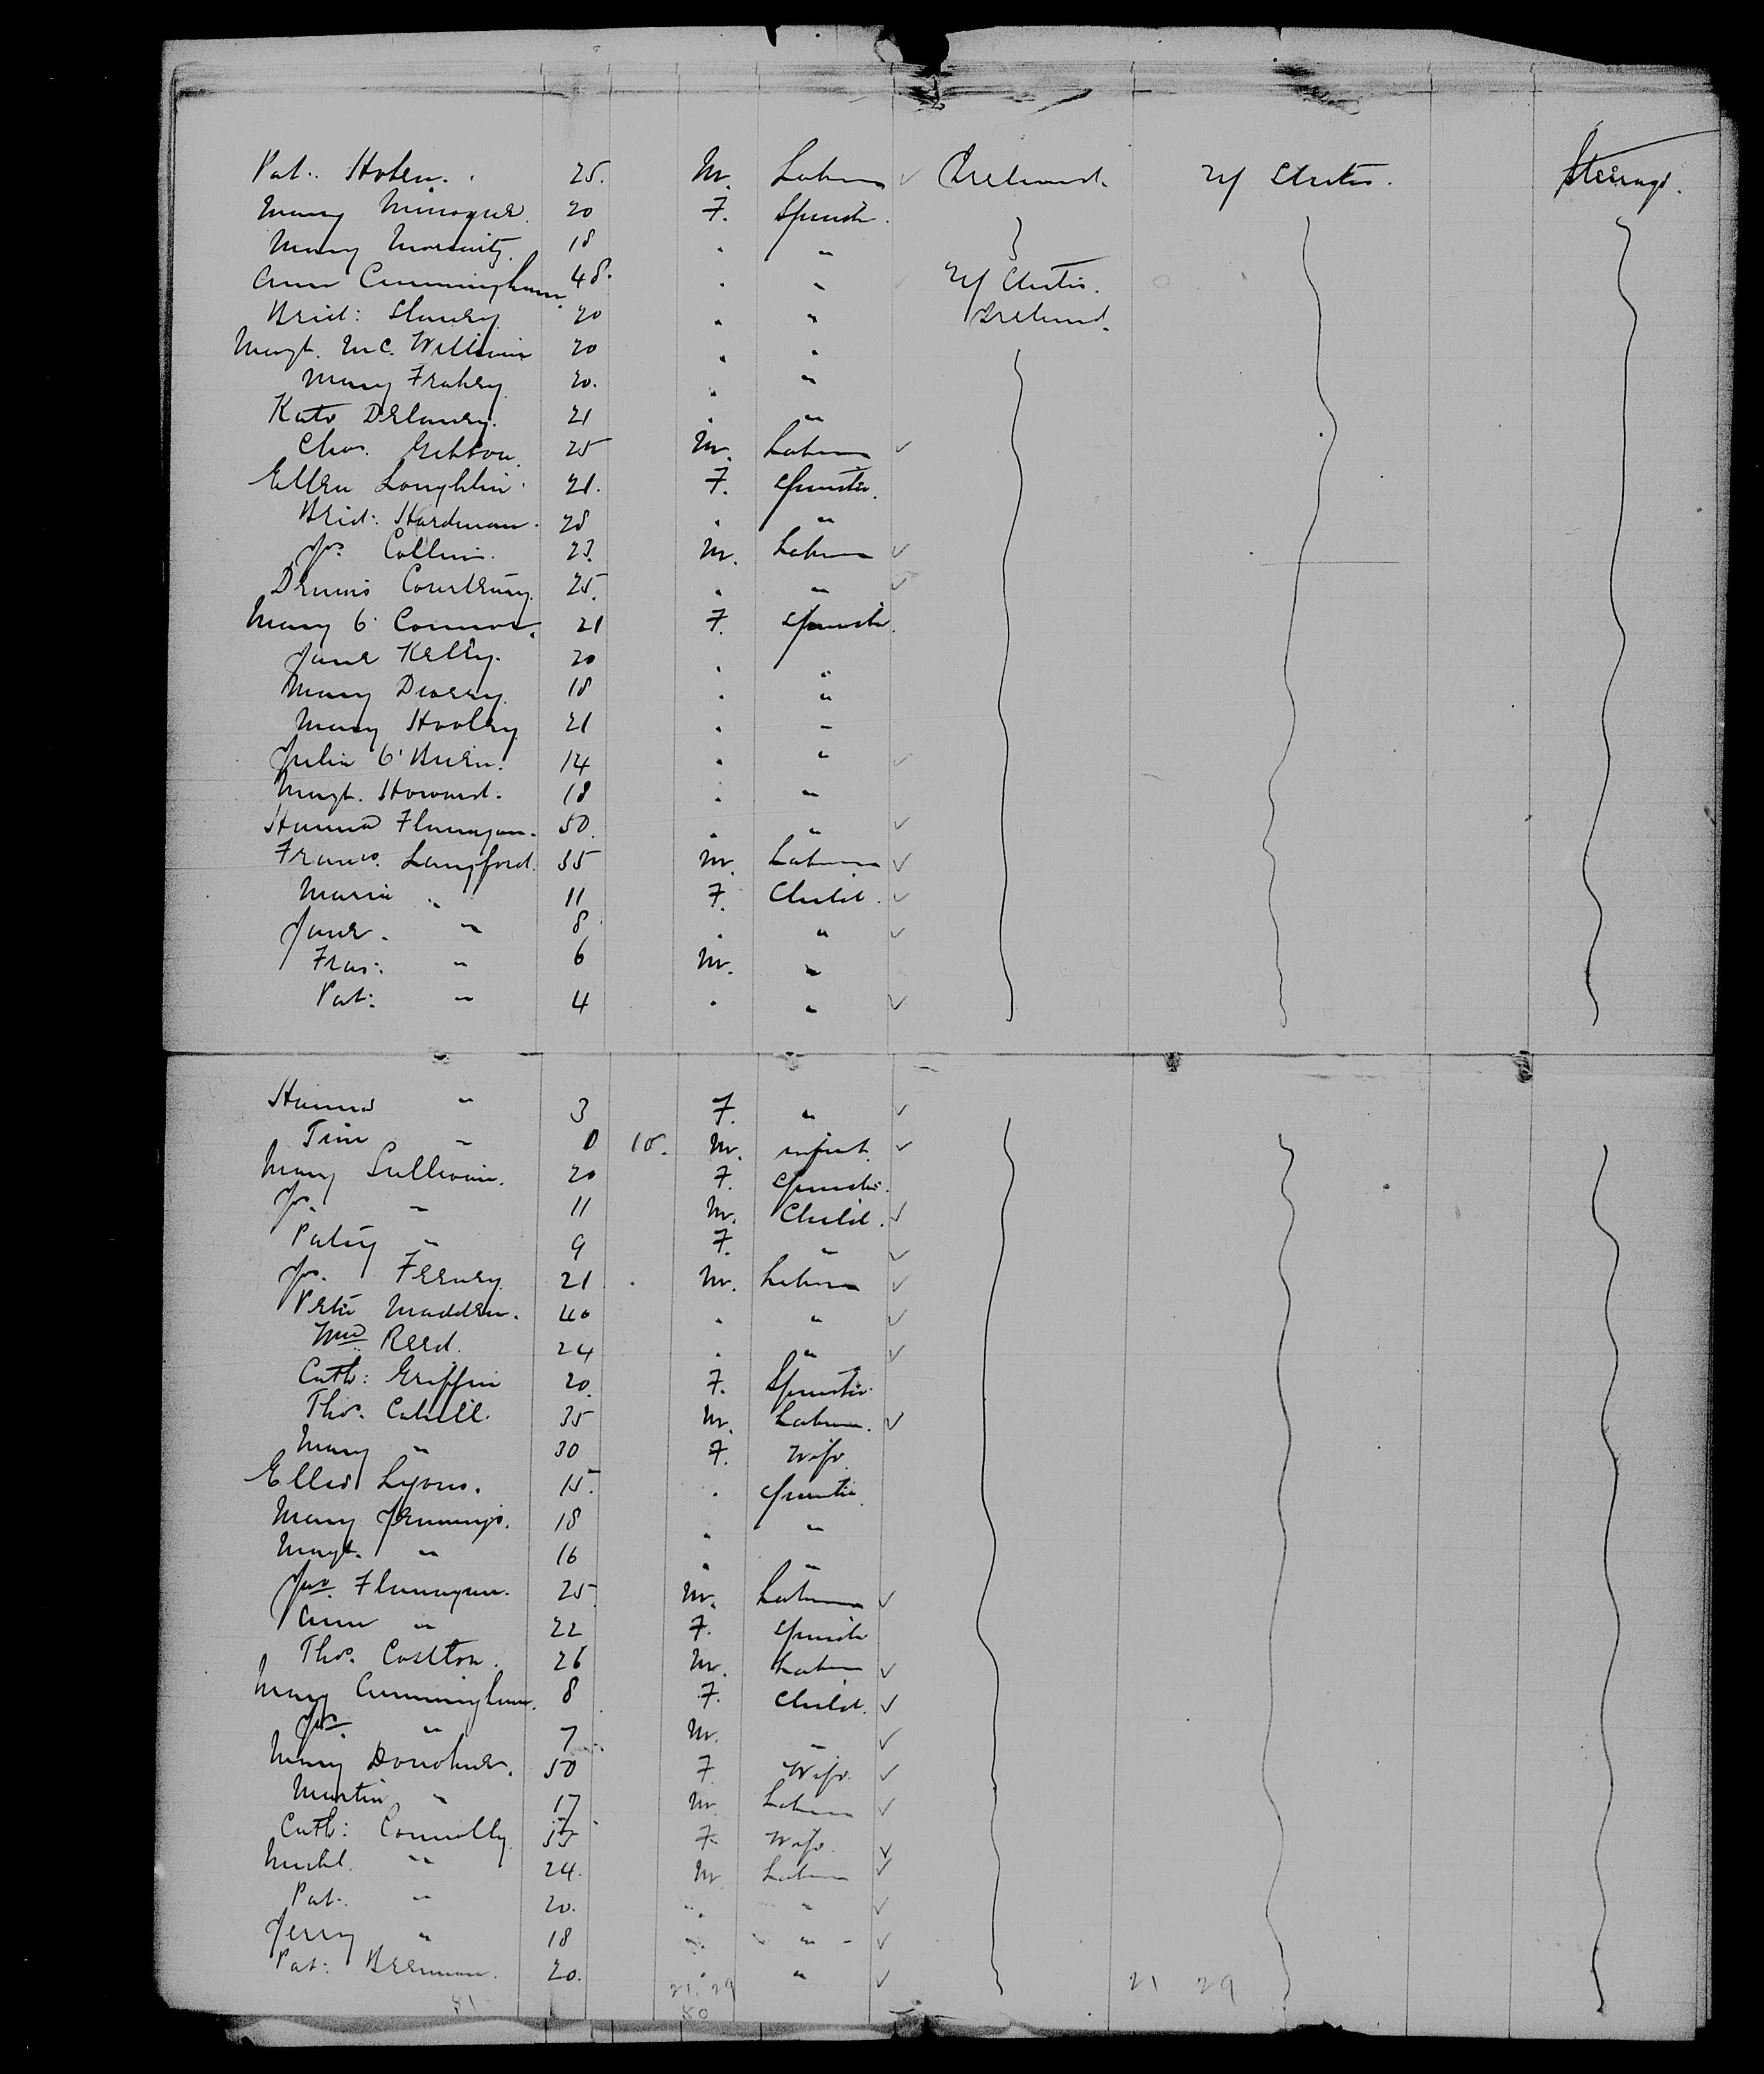 Pat. Holen. 25. M. Labour Ireland. U/ States. Steerage.
Mary Minogue. 20 F. Spinster.
Mary Moriarity. 18 . "
Ann Cunningham. 48. . " U/ States.
Brid: Slamey 20 . " Ireland.
Margt. Mc. William 20 . "
Mary Frahey 20. . "
Kate Delaney. 21 . "
Chas. Gibbon. 25 M. Labour
Ellen Loughlin. 21. F. Spinster.
Brid: Hardman. 28 . "
Jos. Collins. 23. M. Labour
Dennis Courteney. 25. . "
Mary O'Connor. 21 F. Spinster.
Jane Kelly. 20 . "
Mary Deasey. 18 . "
Mary Hooley 21 . "
Julia O'Brien. 14 . "
Margt. Howard. 18 . "
Hanna Flanagan. 50. . "
Francs. Langford. 35 M. Labour
Maria " 11 F. Child.
Jane. " 8 . "
Fras: " 6 M. "
Pat: " 4 . "
Hanna " 3 F. "
Tim " 0 10. M. infant.
Mary Sullivan. 20 F. Spinster.
Jos. " 11 M. Child.
Patsy " 9 F. "
Jos. Feeney. 21. M. Labour
Peter Madden. 40 . "
Wm Reed. 24 . "
Cath: Griffin 20. F. Spinster.
Thos. Cahill. 35 M. Labour.
Mary " 30 F. Wife.
Ellen Lyons. 15. . Spinster.
Mary Jennings. 18 . "
Margt. " 16 . "
Jas. Flanagan. 25. M. Labour
Ann " 22 F. Spinster
Thos. Costton. 26 M. Labour
Mary Cunningham. 8 F. Child.
Jas. " 7 M. "
Mary Donohue. 50 F. Wife.
Martin " 17 M. Labour
Cath: Connolly. 55 F. Wife.
Michl. " 24. M Labour
Pat. " 20. . "
Jerry " 18 . "
Pat: Brennan. 20. . "
51 21. 29 21 29
80